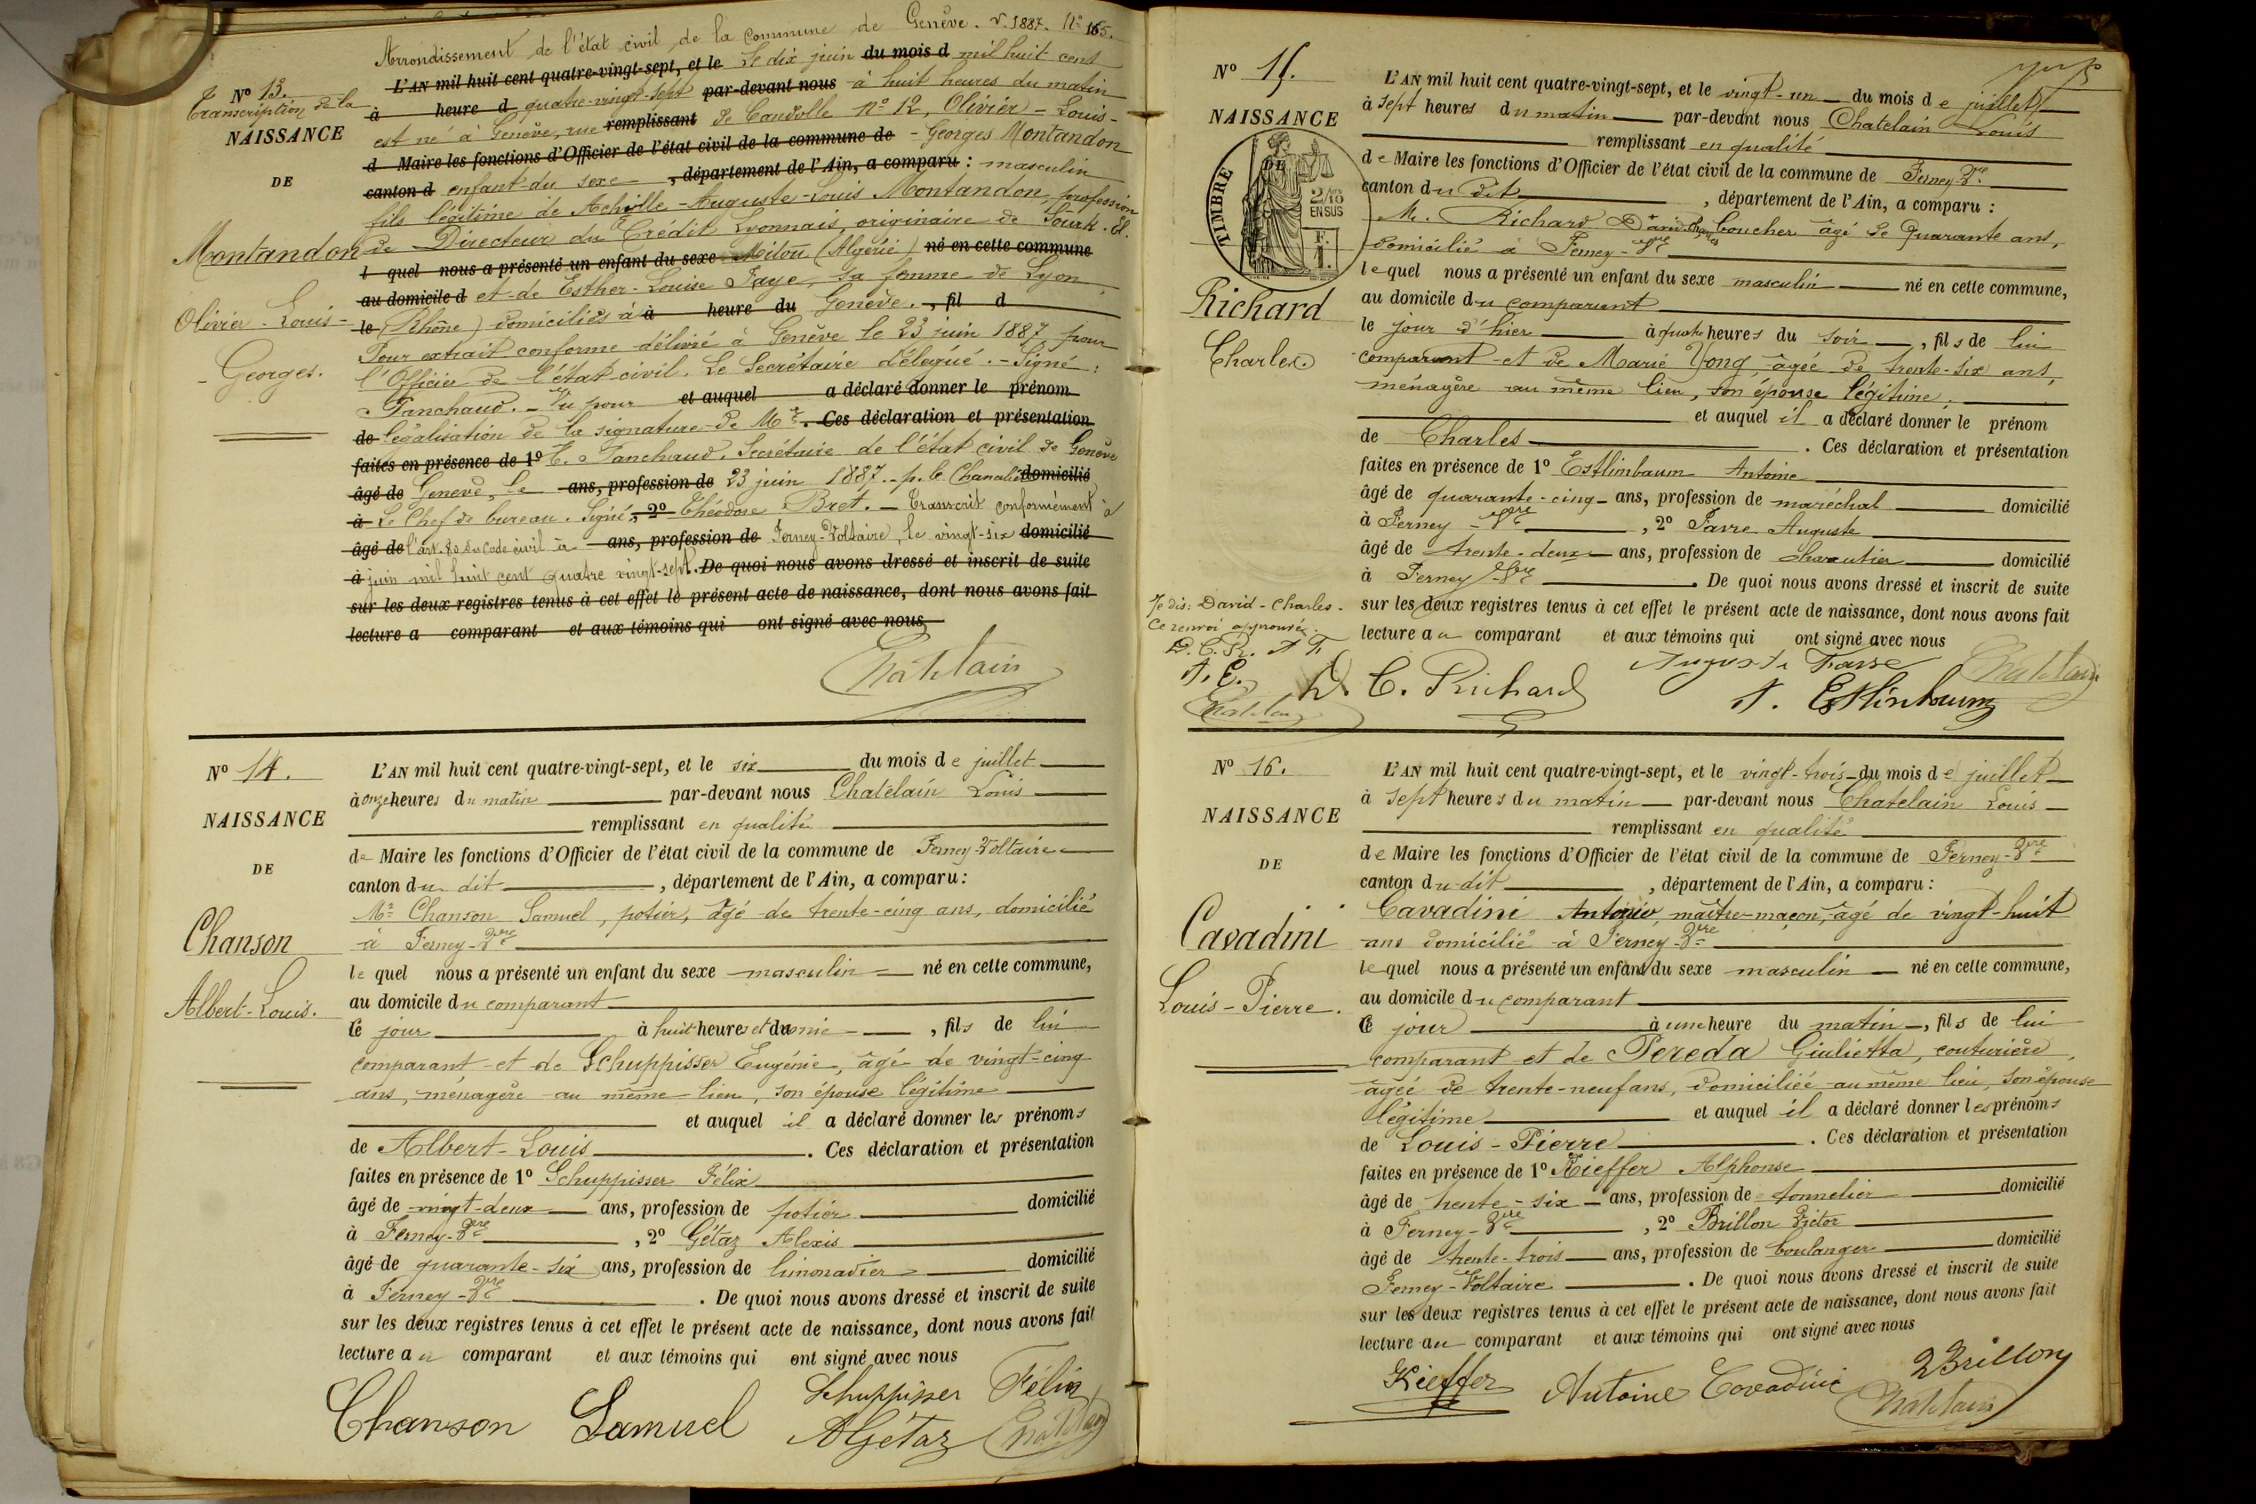 Arrondissement de l'état civil de la commune de Genève. v. 1887. N° 165.
N° 13.
Transcription de la
NAISSANCE
DE
Montandon
Olivier-Louis-
Georges.
L'AN mil huit cent quatre-vingt-sept, et le Le dix juin du mois d mil huit cent
à heure d quatre-vingt-sept par-devant nous à huit heures du matin
est né à Genève, rue remplissant de Candolle N° 12, Olivier-Louis-
d Maire les fonctions d'Officier de l'état civil de la commune de -Georges Montandon
canton d enfant du sexe , département de l'Ain, a comparu : masculin
fils légitime de Achille-Auguste-Louis Montandon, profession
de Directeur du Crédit Lyonnais, originaire de Souk-El-
l quel nous a présenté un enfant du sexe Mitou (Algérie) né en cette commune
au domicile d et de Esther-Louise Faye, sa femme de Lyon
le (Rhône) domiciliés à à heure du Genève. , fil d
Pour extrait conforme délivré à Genève le 23 juin 1887 pour
l'Officier de l'état-civil. Le Secrétaire délégué. - Signé :
Panchaud. - Vu pour et auquel a déclaré donner le prénom
de légalisation de la signature de Mr . Ces déclaration et présentation
faites en présence de 1° E. Panchaud. Secrétaire de l'état civil de Genève
âgé de Genève, le ans, profession de 23 juin 1887. - p. le Chancelier domicilié
à Le Chef de bureau. Signé , 2° Théodore Bret. - Transcrit conformément à
âgé de l'art. 80 du Code civil à ans, profession de Ferney-Voltaire, le vingt-six domicilié
à juin mil huit cent quatre vingt-sept. De quoi nous avons dressé et inscrit de suite
sur les deux registres tenus à cet effet le présent acte de naissance, dont nous avons fait
lecture a comparant et aux témoins qui ont signé avec nous
Chatelain
N° 14.
NAISSANCE
DE
Chanson
Albert-Louis.
L'AN mil huit cent quatre-vingt-sept, et le six du mois de juillet
à onze heures du matin par-devant nous Chatelain Louis
remplissant en qualité
de Maire les fonctions d'Officier de l'état civil de la commune de Ferney-Voltaire
canton du dit , département de l'Ain, a comparu :
Mr Chanson Samuel, potier, âgé de trente-cinq ans, domicilié
à Ferney-Vre
lequel nous a présenté un enfant du sexe masculin né en cette commune,
au domicile du comparant
ce jour à huit heures et demie , fils de lui
comparant et de Schuppisser Eugénie, âgé de vingt-cinq
ans, ménagère au même lieu, son épouse légitime
et auquel il a déclaré donner les prénoms
de Albert-Louis . Ces déclaration et présentation
faites en présence de 1° Schuppisser Félix
âgé de vingt-deux ans, profession de potier domicilié
à Ferney-Vre , 2° Gétaz Alexis
âgé de quarante-six ans, profession de limonadier domicilié
à Ferney-Vre . De quoi nous avons dressé et inscrit de suite
sur les deux registres tenus à cet effet le présent acte de naissance, dont nous avons fait
lecture au comparant et aux témoins qui ont signé avec nous
Chanson Samuel Schuppisser Félix
AGétaz Chatelain
N° 15.
NAISSANCE
TIMBRE DE
2/10 EN SUS
F. 1.
Richard
Charles
L'AN mil huit cent quatre-vingt-sept, et le vingt-un du mois de juillet
à sept heures du matin par-devant nous Chatelain Louis
remplissant en qualité
de Maire les fonctions d'Officier de l'état civil de la commune de Ferney-Vre
canton du dit , département de l'Ain, a comparu :
M. Richard David Charles boucher âgé de quarante ans,
domicilié à Ferney-Vre
lequel nous a présenté un enfant du sexe masculin né en cette commune,
au domicile du comparant
le jour d'hier à quatre heures du soir , fils de lui
comparant et de Marie Yong, âgée de trente-six ans,
ménagère au même lieu, son épouse légitime.
et auquel il a déclaré donner le prénom
de Charles . Ces déclaration et présentation
faites en présence de 1° Estlinbaum Antoine
âgé de quarante-cinq ans, profession de maréchal domicilié
à Ferney-Vre , 2° Favre Auguste
âgé de trente-deux ans, profession de charcutier domicilié
à Ferney-Vre . De quoi nous avons dressé et inscrit de suite
sur les deux registres tenus à cet effet le présent acte de naissance, dont nous avons fait
lecture au comparant et aux témoins qui ont signé avec nous
Je dis: David-Charles.
Ce renvoi approuvé.
D. C. R. A F.
A. E.
Chatelain
D. C. Richard Auguste Favre Chatelain
A. Estlinbaum
N° 16.
NAISSANCE
DE
Cavadini
Louis-Pierre.
L'AN mil huit cent quatre-vingt-sept, et le vingt-trois du mois de juillet
à sept heures du matin par-devant nous Chatelain Louis
remplissant en qualité
de Maire les fonctions d'Officier de l'état civil de la commune de Ferney-Vre
canton du dit , département de l'Ain, a comparu :
Cavadini Antonio, maître-maçon, âgé de vingt-huit
ans domicilié à Ferney-Vre
lequel nous a présenté un enfant du sexe masculin né en cette commune,
au domicile du comparant
ce jour à une heure du matin , fils de lui
comparant et de Pereda Giulietta, couturière,
âgée de trente-neuf ans, domiciliée au même lieu, son épouse
légitime et auquel il a déclaré donner les prénoms
de Louis-Pierre . Ces déclaration et présentation
faites en présence de 1° Kieffer Alphonse
âgé de trente-six ans, profession de tonnelier domicilié
à Ferney-Vre , 2° Brillon Victor
âgé de trente-trois ans, profession de boulanger domicilié
Ferney-Voltaire . De quoi nous avons dressé et inscrit de suite
sur les deux registres tenus à cet effet le présent acte de naissance, dont nous avons fait
lecture au comparant et aux témoins qui ont signé avec nous
Kieffer Antoine Cavadini VBrillon
Chatelain